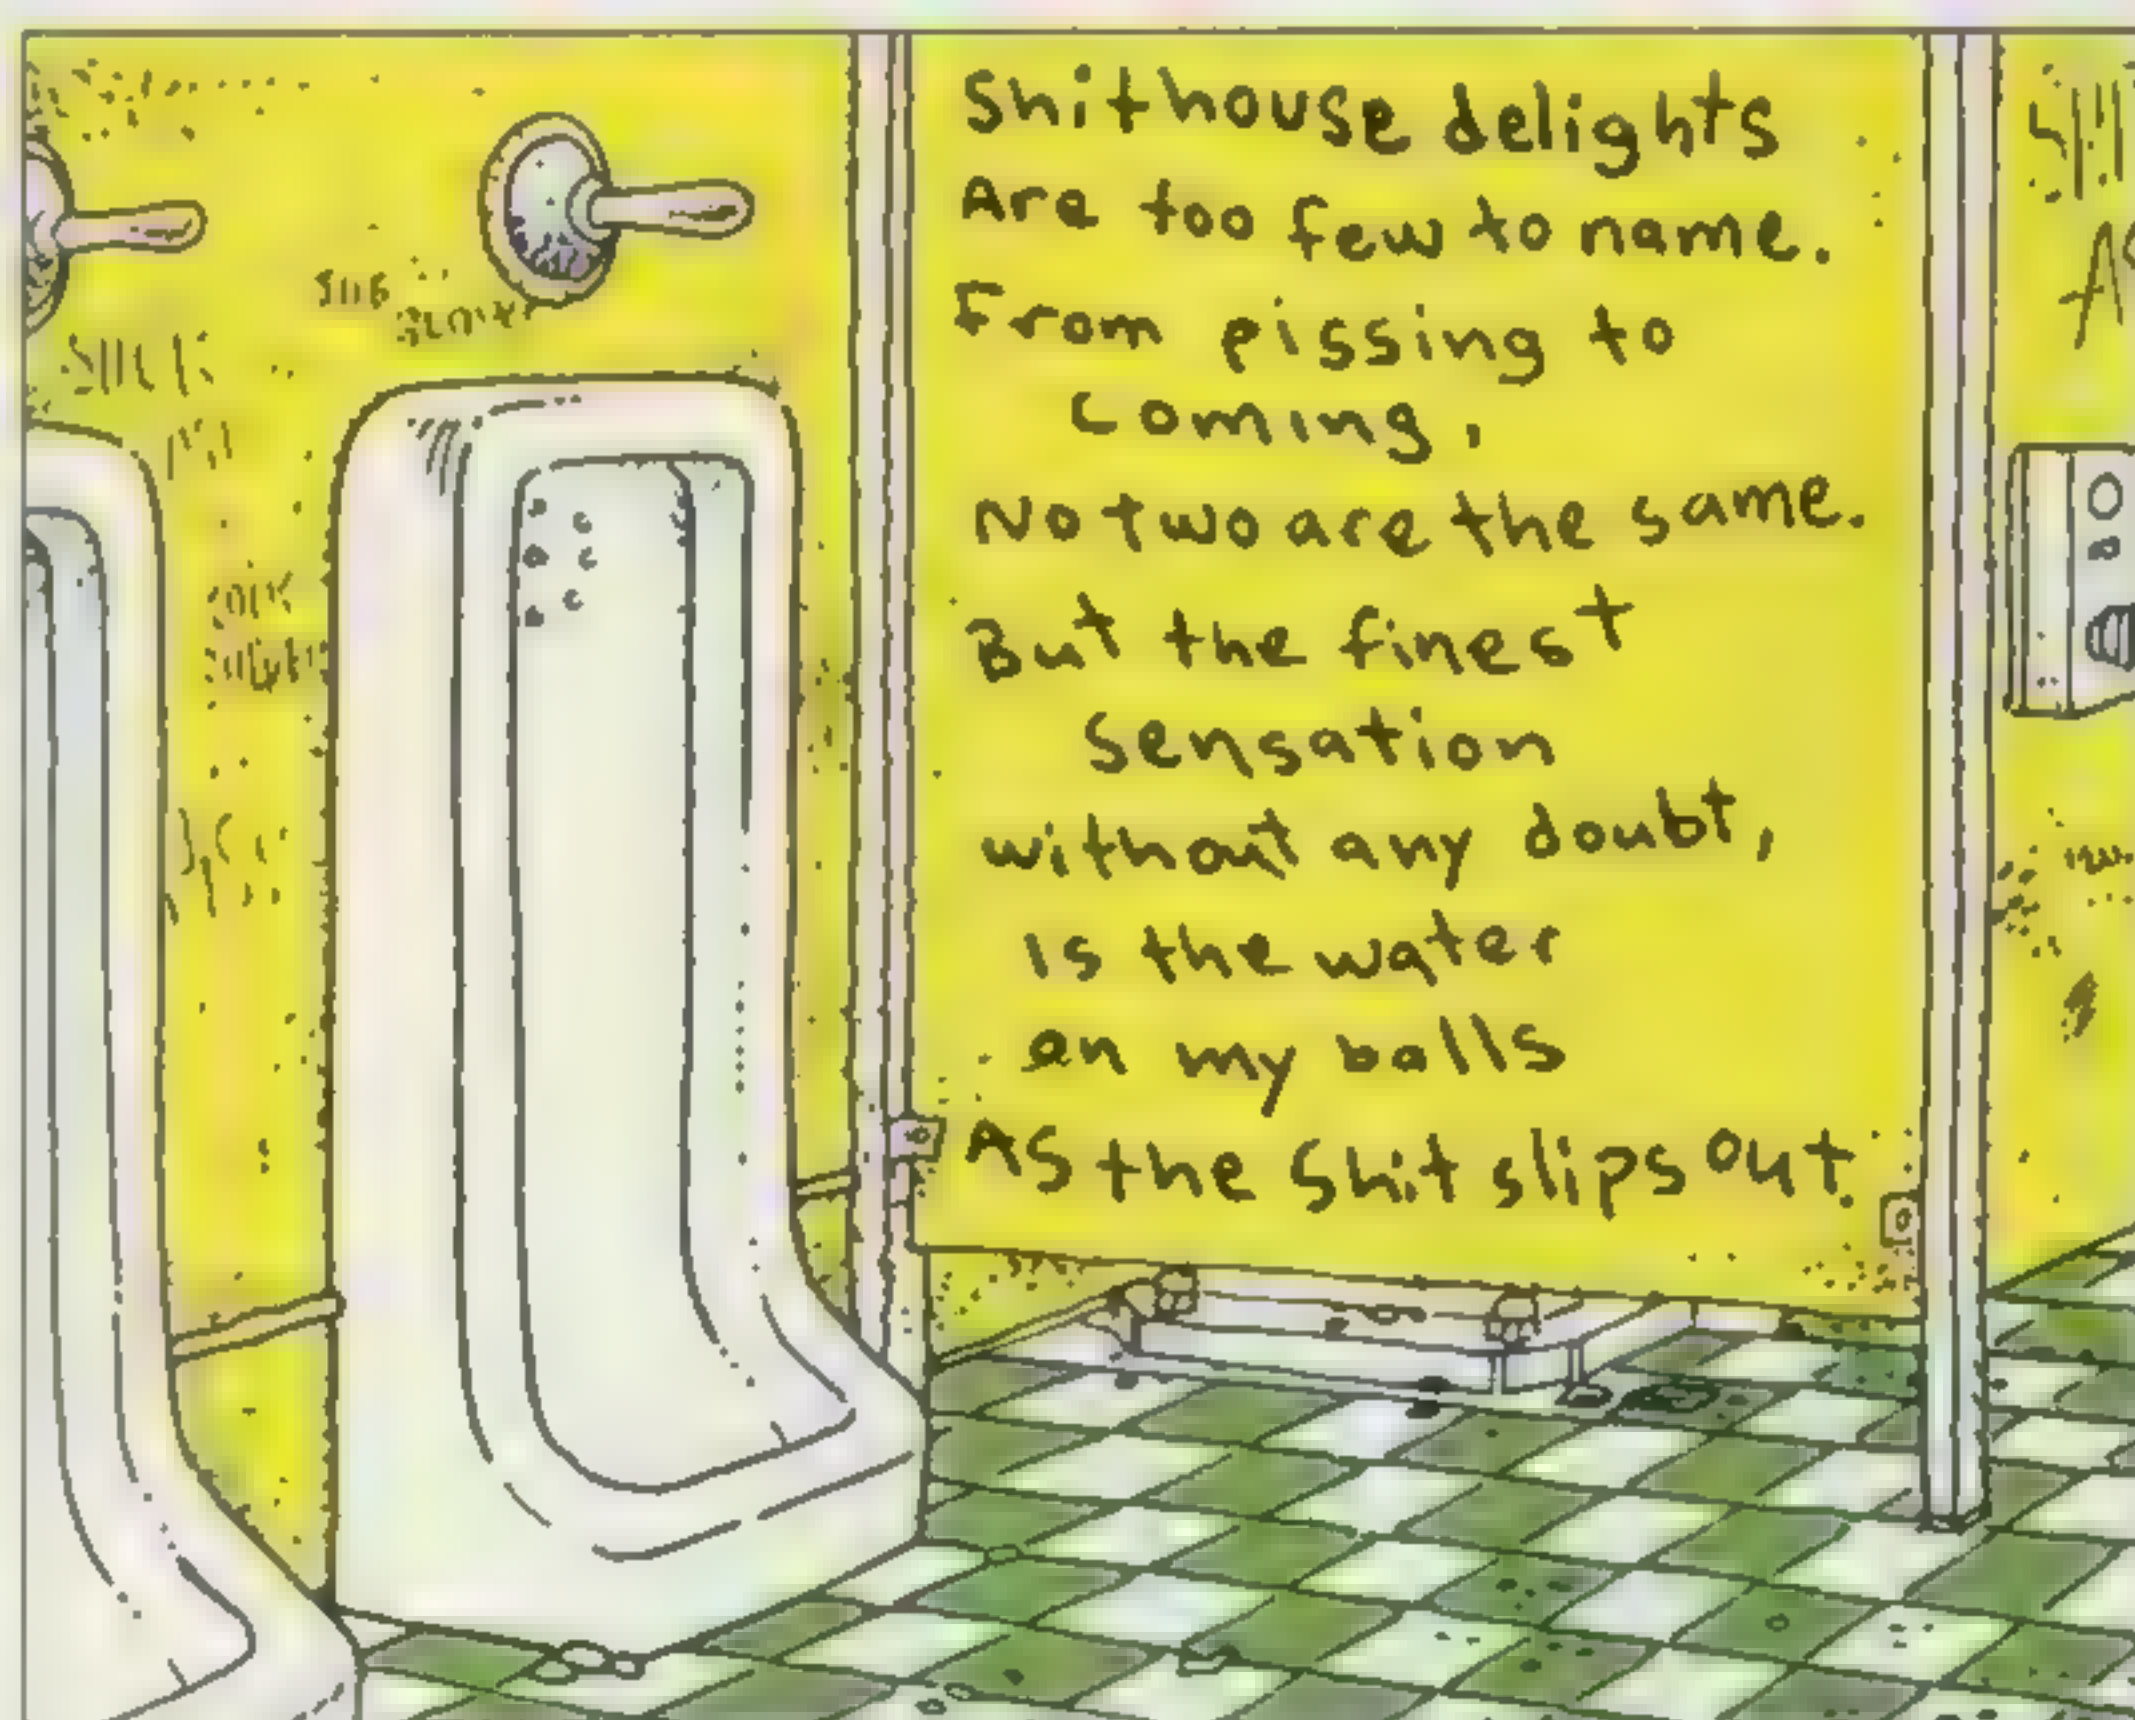 Shithouse delights
Are too few to name.
From pissing to
coming,
No two are the same.
But the finest
sensation
without any doubt,
Is the water
on my balls
As the shit slips out.
SUCK